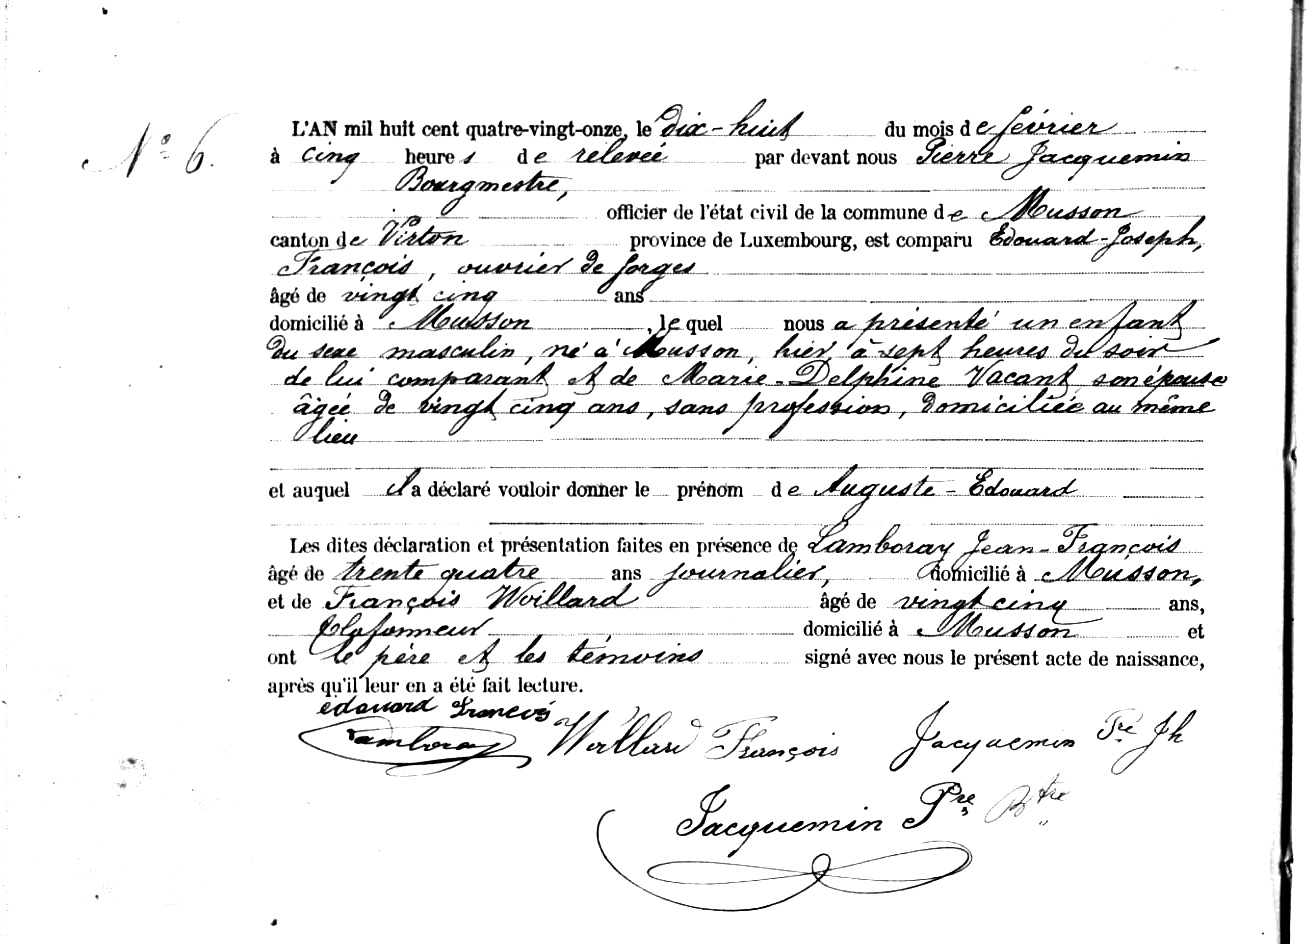 Nº 6.
L'AN mil huit cent quatre-vingt-onze, le dix-huit du mois de février
à cinq heures de relevée par devant nous Pierre Jacquemin
Bourgmestre,
officier de l'état civil de la commune de Musson
canton de Virton province de Luxembourg, est comparu Edouard-Joseph,
François, ouvrier de forges
âgé de vingt cinq ans
domicilié à Musson, lequel nous a présenté un enfant
du sexe masculin, né à Musson, hier, à sept heures du soir
de lui comparant et de Marie-Delphine Vacant, son épouse
âgée de vingt cinq ans, sans profession, domiciliée au même
lieu
et auquel il a déclaré vouloir donner le prénom de Auguste-Edouard
Les dites déclaration et présentation faites en présence de Lamboray Jean-François
âgé de trente quatre ans journalier, domicilié à Musson,
et de François Woillard âgé de vingt cinq ans,
Plafonneur domicilié à Musson et
ont le père et les témoins signé avec nous le présent acte de naissance,
après qu'il leur en a été fait lecture.
edouard François
Lamboray Woillard François Jacquemin Pre Jh
Jacquemin Pre Btre